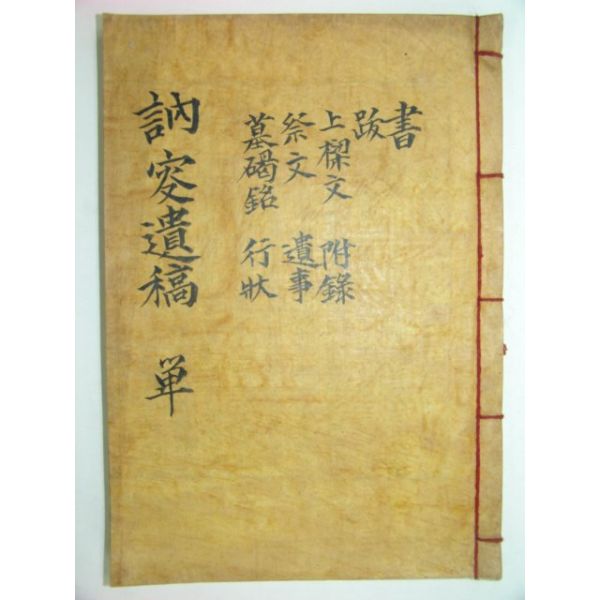 書
跋
上樑文 附錄
祭文 遺事
墓碣銘 行狀
訥窔遺稿 単